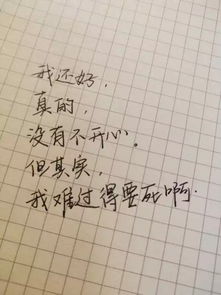 我还好，
真的，
没有不开心。
但其实，
我难过得要死啊.